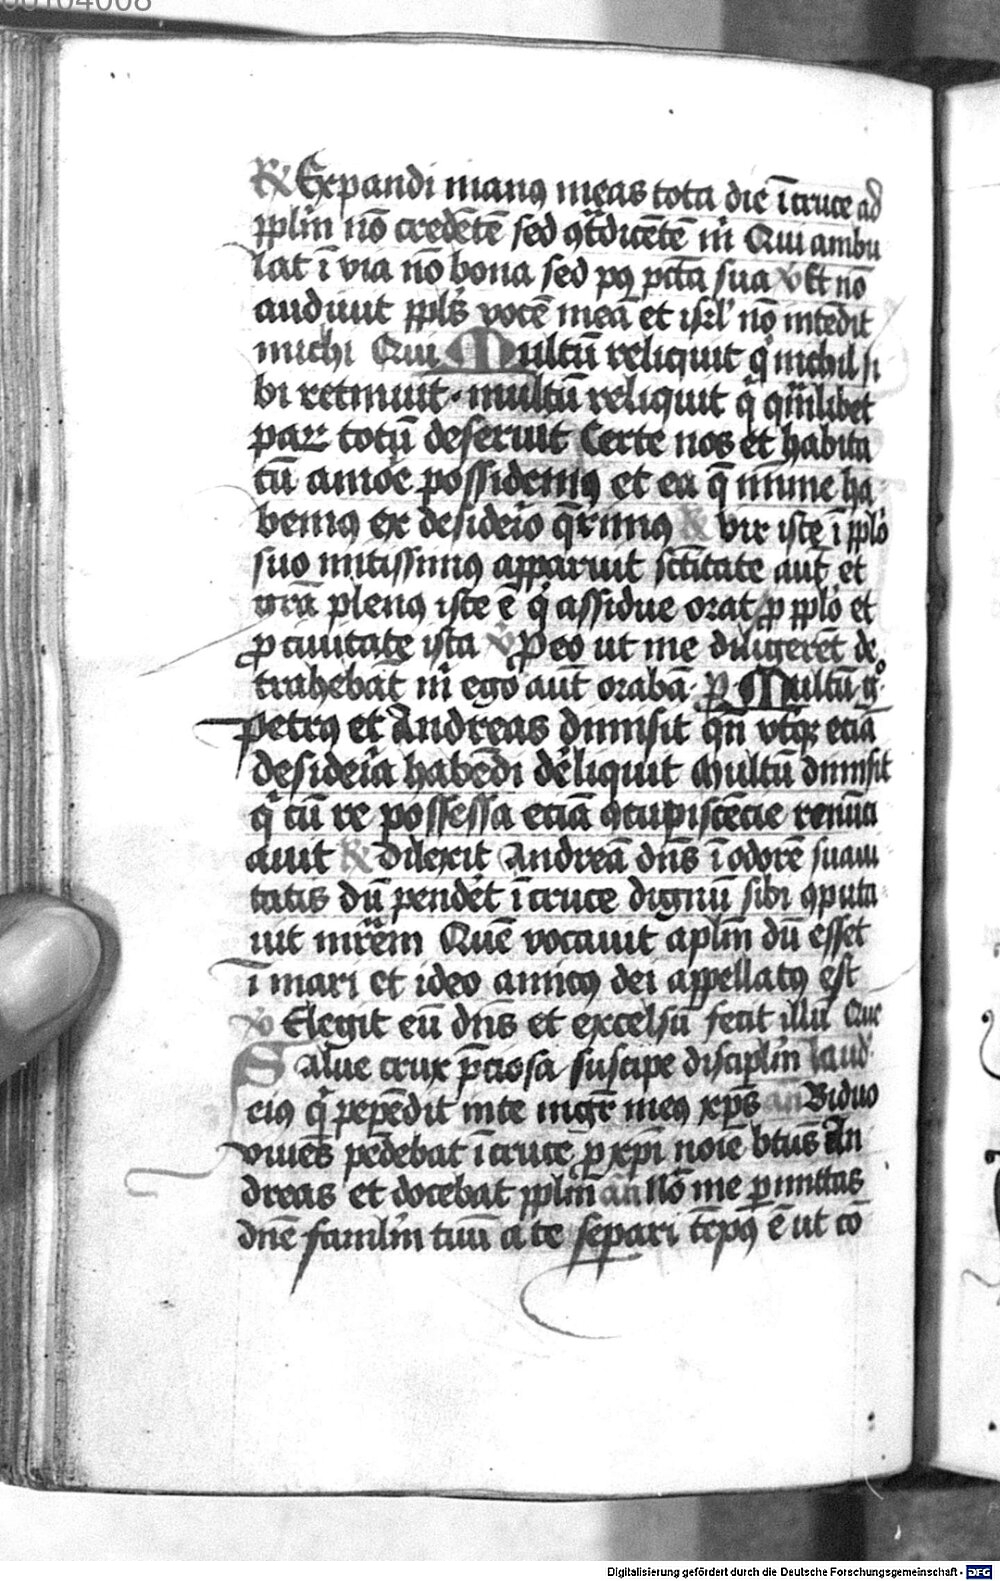 ℟ Expandi manꝰ meas tota die ī cruce ad
pplm̄ nō credētē sed ꝯt̄dicētē m̄ Qui ambu
lat ī via nō bona sed pꝰ pctā sua ℣ Et nō
audiuit ppls̄ vocē meā et isrl̄ nō intēdit
michi Qui Multū reliquit q̄ nichil si
bi retinuit · multū reliquit q̄ qm̄libet
paꝝ totū deseruit Certe nos et habita
tū amōe possidemꝰ et ea q̄ mīnime ha
bemꝰ ex desideīo q̄rimꝰ ℟ vir iste ī pplō
suo mitissimꝰ apparuit sctītate aut̄ et
grā plenꝰ iste ē q̄ assidue orat ꝓ pplō et
ꝓ ciuitate ista ℣ Peo ut me diligerēt de
trahebāt m̄ ego aut̄ orabā · ꝓ Multū gº
Petrꝰ et Andreas dimisit qn̄ vtqꝫ eciā
desideīa habēdi deliquit Multū dimisit
q̄ cū re possessa eciā ꝯcupiscēcie renūci
auit ℟ Dilexit Andreā dn̄s ī odorē suaui
tatis dū pendēt ī cruce dignū sibi ꝯputa
uit mr̄em Quē vocauit aplm̄ dū esset
ī mari et ideo amicꝰ dei appellatꝰ est
℣ Elegit eū dn̄s et excelsū fecit illū Que
Salue crux p̄ciosa suscipe discipl̄m laud
eiꝰ q̄ pepēdit in te mgr̄ meꝰ xp̄s an̄ Biduo
viuēs pēdebat ī cruce ꝓ xp̄i noīe btūs An
dreas et docebat pplm̄ an̄ Nō me ꝑmittas
dnē famlm̄ tuū a te separi tēpꝰ ē ut cō
Digitalisierung gefördert durch die Deutsche Forschungsgemeinschaft - DFG